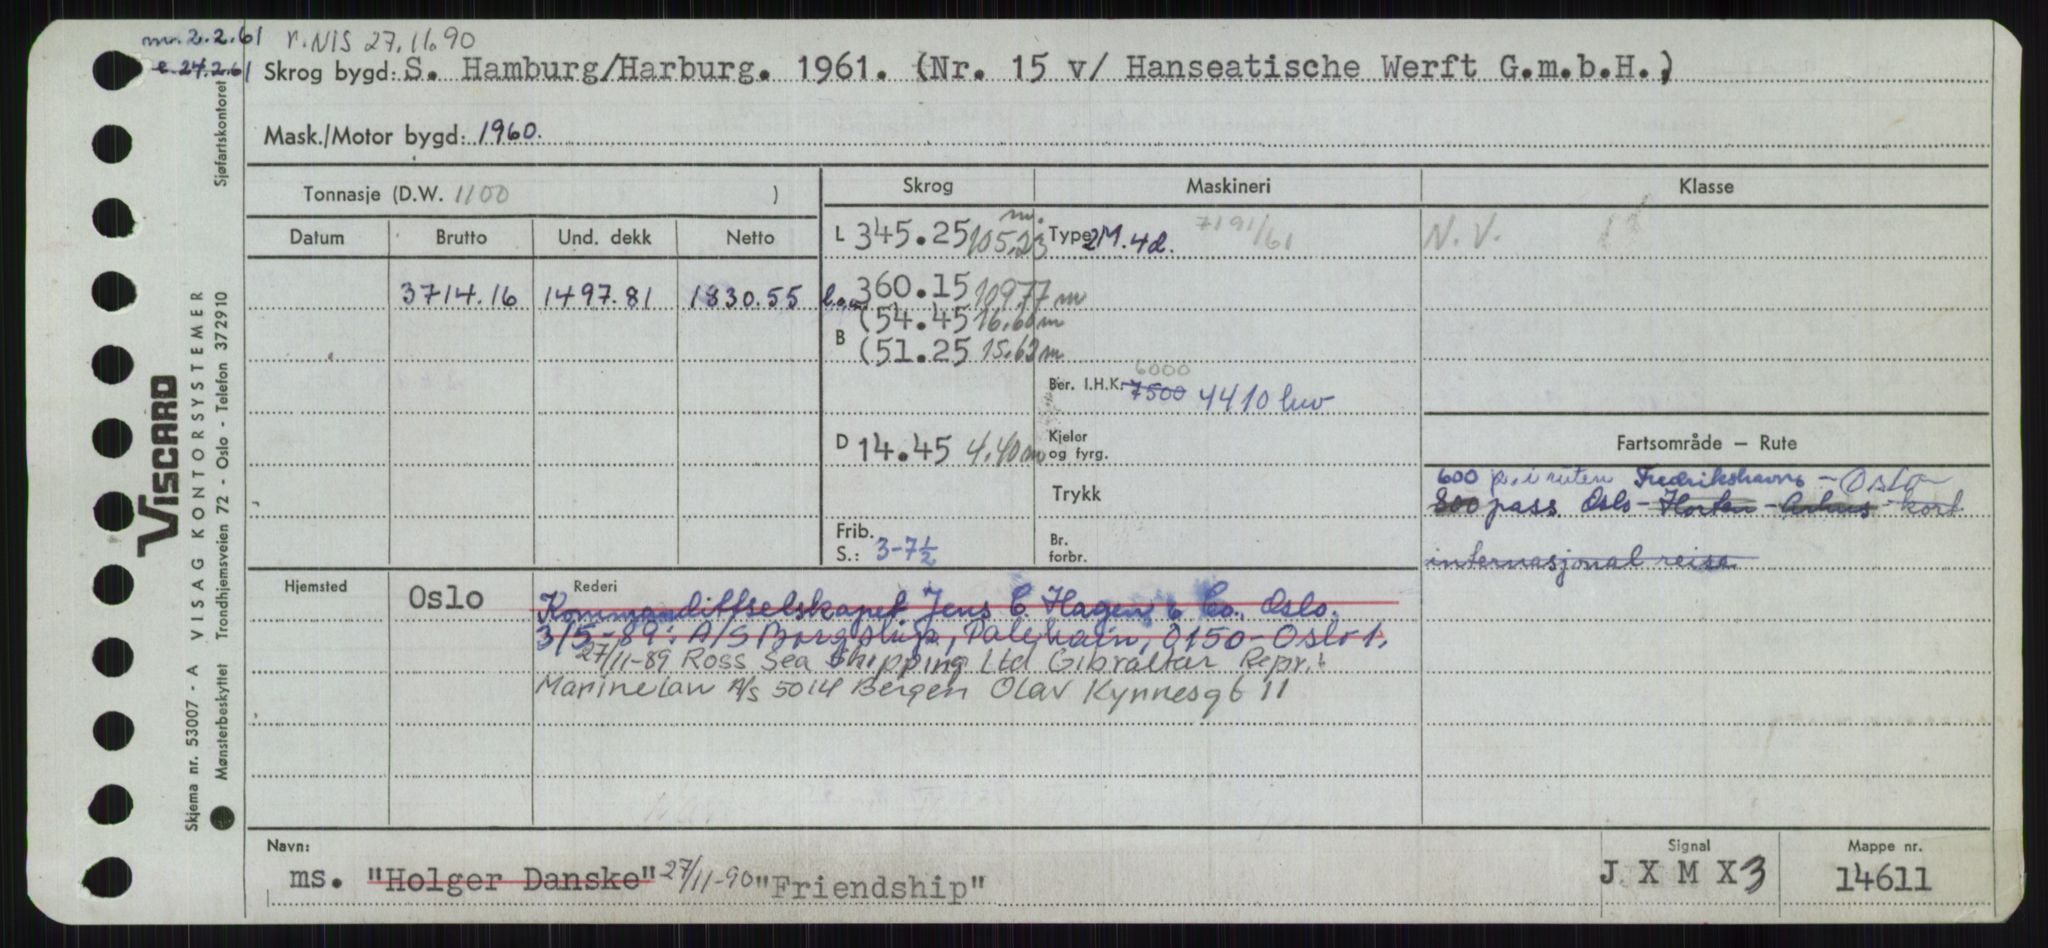 m. 2.2.61 r. NIS 27.11.90
e. 24.2.61 Skrog bygd: S. Hamburg/Harburg. 1961. (Nr. 15 v/ Hanseatische Werft G.m.b.H.)
Mask./Motor bygd: 1960.
Tonnasje (D.W. 1100 ) Skrog Maskineri Klasse
Datum Brutto Und. dekk Netto
L 345.25 105,23 m. Type 2M. 4d. 7191/61 N.V.
3714.16 1497.81 1830.55 l.o.a. 360.15 109,77 m
B (54.45 16,60 m
(51.25 15.62 m
Ber. I.H.K. 7500 6000 4410 kw
D 14.45 4,40 m Kjeler og fyrg. Fartsområde – Rute
600 p. i ruten Fredrikshavn – Oslo
Trykk 800 pass Oslo - Horten - Århus - kort
Frib. S.: 3-7½ Br. forbr. internasjonal reise
Hjemsted Oslo Rederi
Kommandittselskapet Jens C. Hagen & Co., Oslo.
3/5-89: A/S Borgships, Paleyhain, 0150 - Oslo 1.
27/11-89 Ross Sea Shipping Ltd Gibraltar Repr.:
Marinelaw A/S 5014 Bergen Olav Kynnesgt 11
Navn: Signal Mappe nr.
ms. "Holger Danske" 27/11-90 "Friendship" J X M X 3 14611
Skjema nr. 53007 - A VISAG KONTORSYSTEMER Sjøfartskontoret
Mønsterbeskyttet Trondhjemsveien 72 - Oslo - Telefon 372910
VISCARD